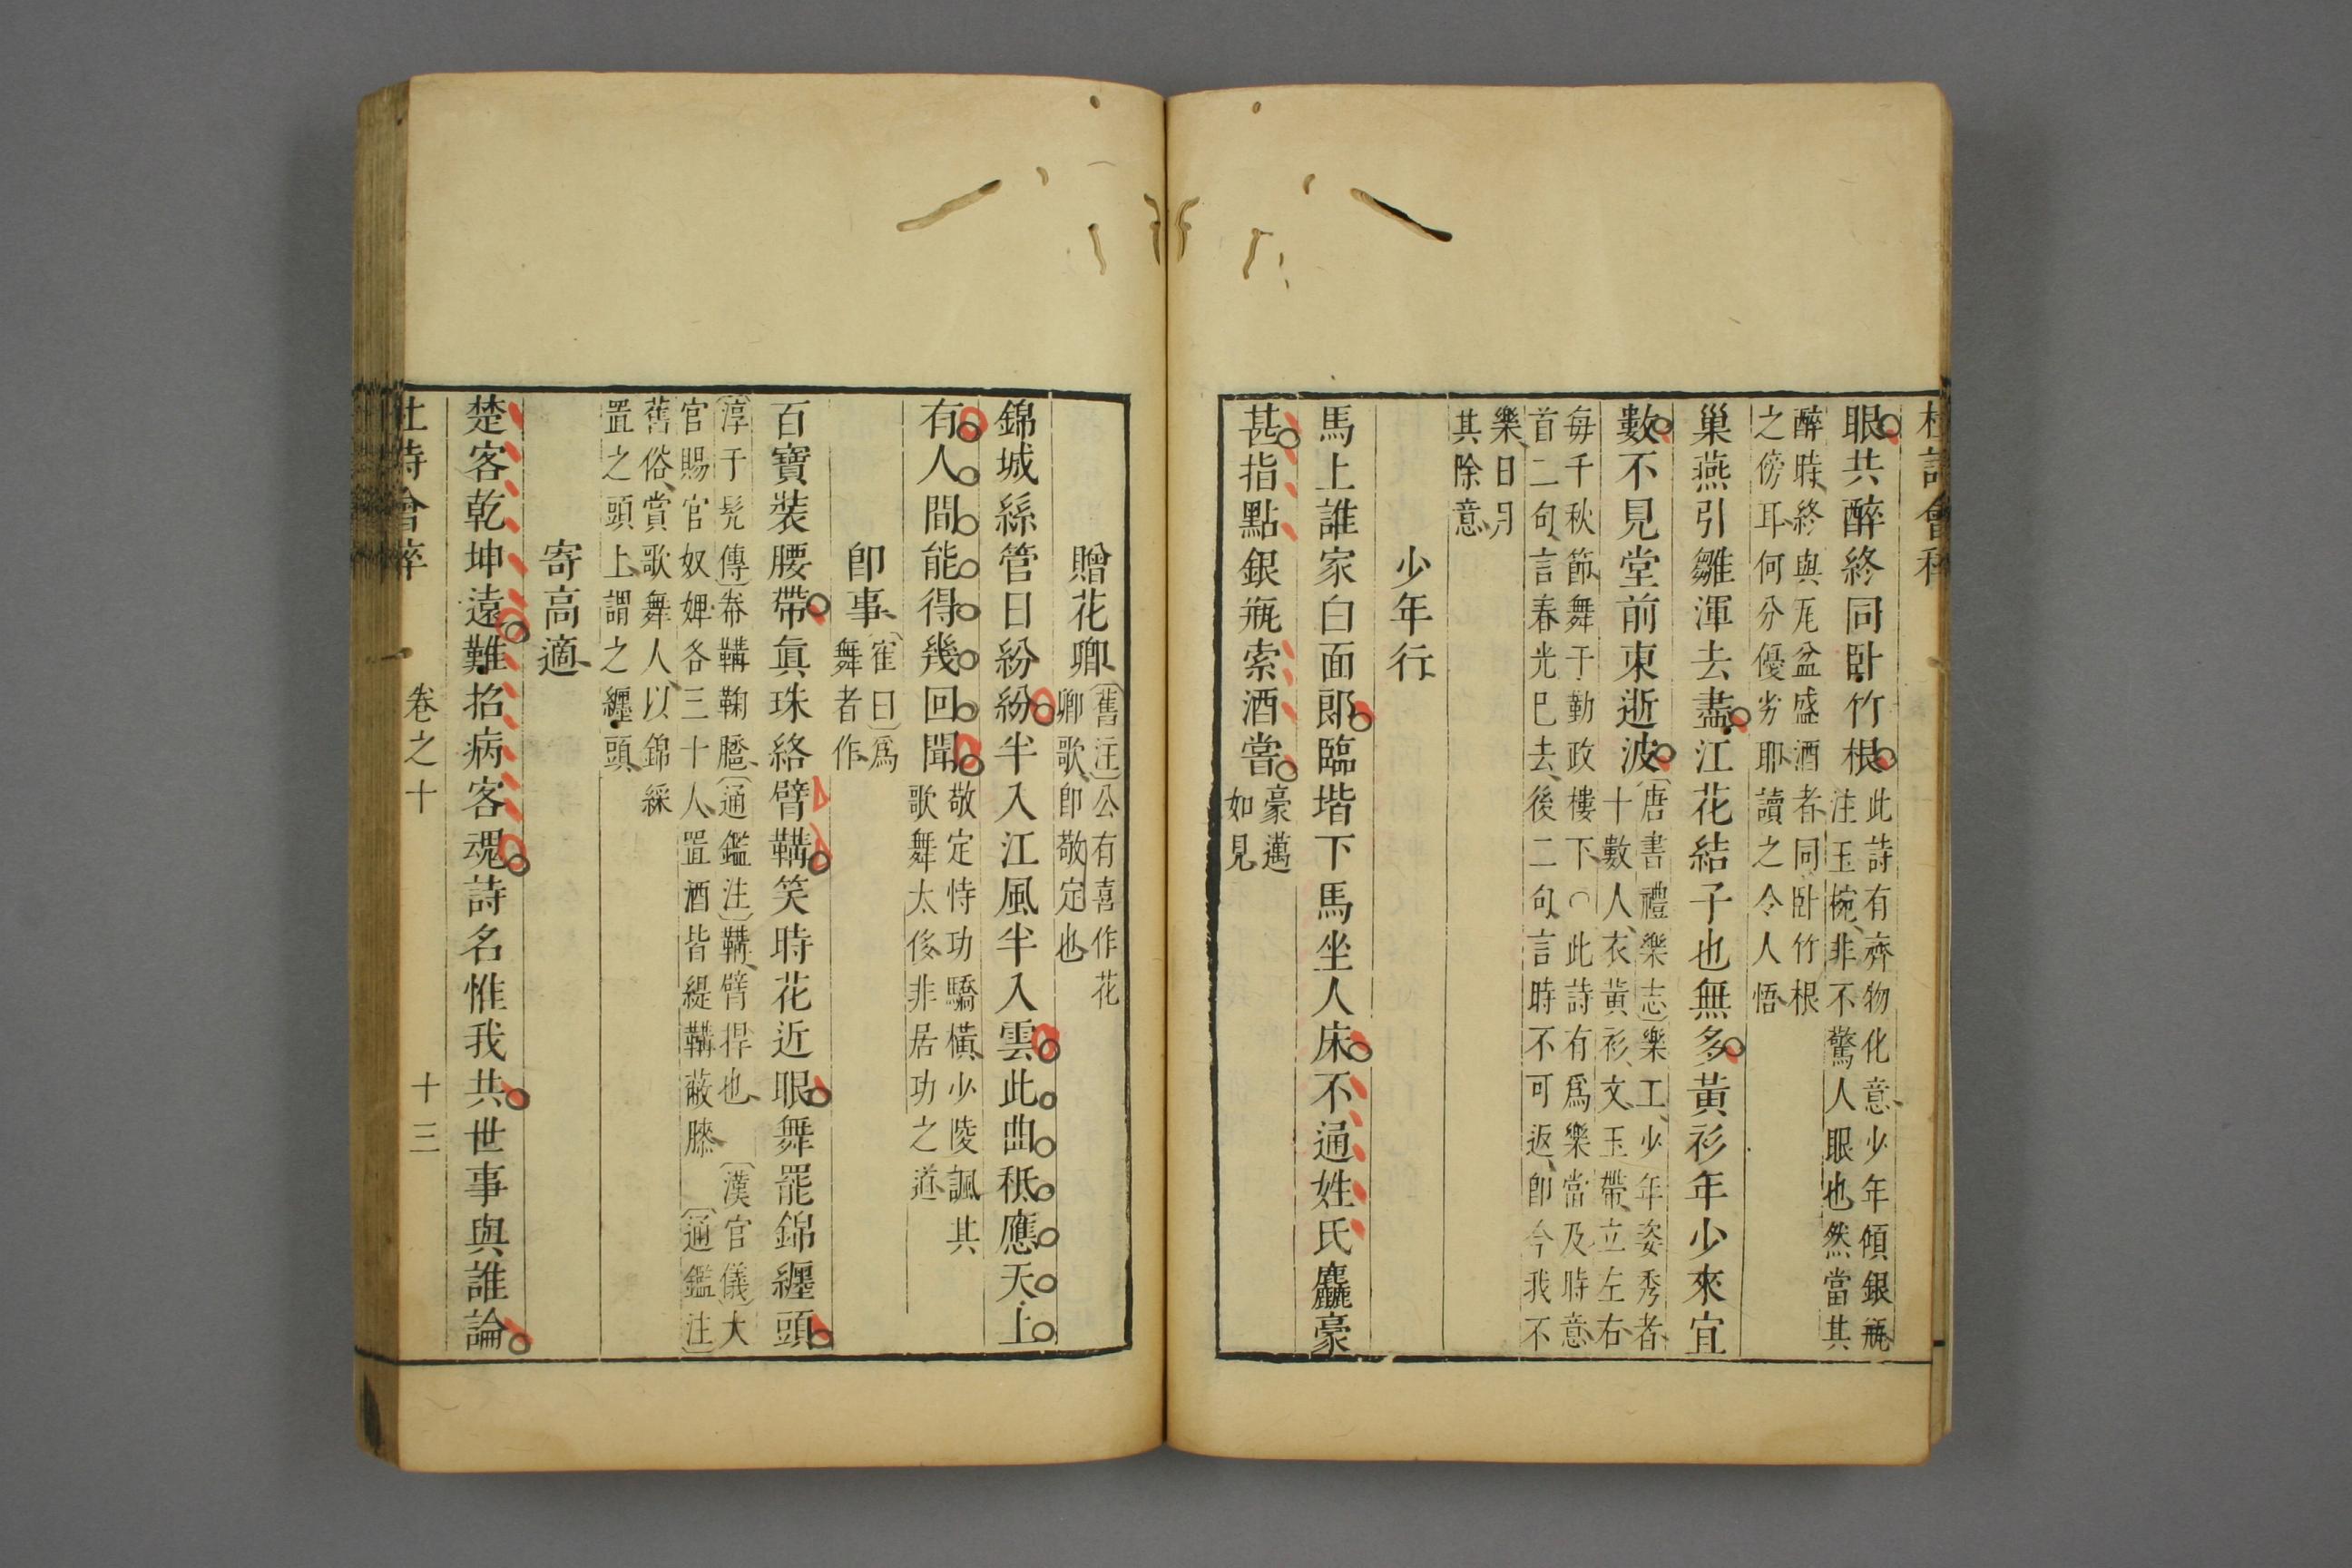 眼共醉終同卧竹根
此詩有齊物化意少年傾銀瓶
注玉椀非不驚人眼也然當其
醉時終與瓦盆盛酒者同卧竹根
之傍耳何分優劣耶讀之令人悟
巢燕引雛渾去盡江花結子也無多黃衫年少來宜
數不見堂前東逝波
〔唐書禮樂志〕樂工少年姿秀者
十數人衣黃衫文玉帶立左右
每千秋節舞于勤政樓下○此詩有爲樂當及時意
首二句言春光已去後二句言時不可返卽今我不
樂日月
其除意
少年行
馬上誰家白面郎臨堦下馬坐人床不通姓氏麤豪
甚指點銀瓶索酒嘗
豪邁
如見
贈花卿
〔舊注〕公有喜作花
卿歌卽敬定也
錦城絲管日紛紛半入江風半入雲此曲秪應天上
有人間能得幾回聞
敬定恃功驕橫少陵諷其
歌舞太侈非居功之道
卽事
〔崔曰〕爲
舞者作
百寶裝腰帶眞珠絡臂鞲笑時花近眼舞罷錦纏頭
〔淳于髠傳〕帣鞲鞠𦜕〔通鑑注〕鞲臂捍也〔漢官儀〕大
官賜官奴婢各三十人置酒皆緹鞲蔽膝〔通鑑注〕
舊俗賞歌舞人以錦綵
置之頭上謂之纏頭
寄高適
楚客乾坤遠難招病客魂詩名惟我共世事與誰論
杜詩會稡
卷之十
十三